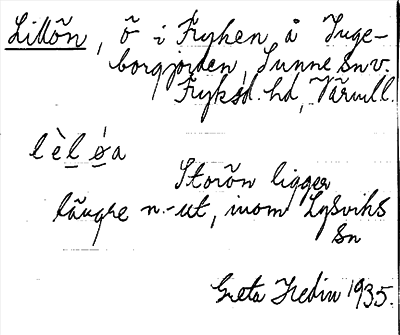 Lillön, ö i Fryken, å Inge-
borgjorden, Sunne sn v.
Fryksd. hd, Värml.
lèl ǿa
Storön ligger
längre n.-ut, inom Lysviks
sn
Greta Hedin 1935.